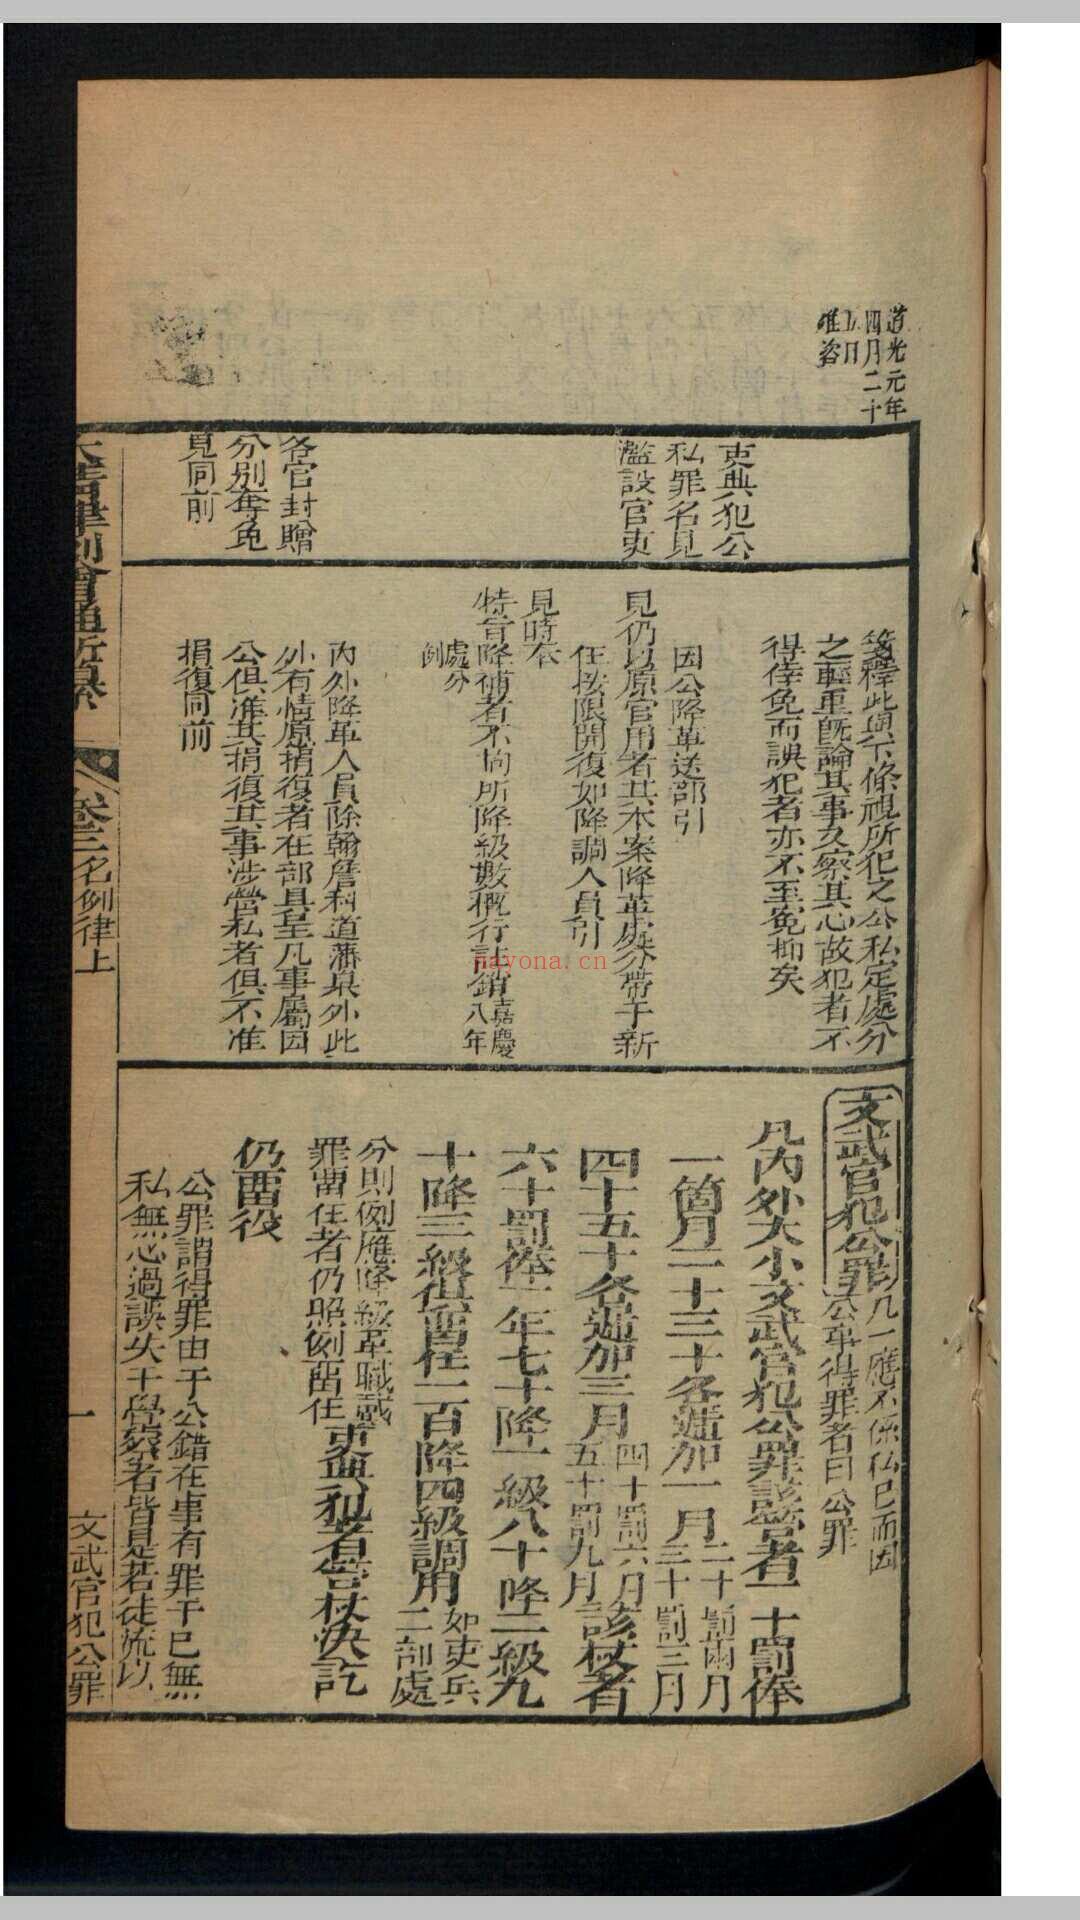 道光元年
四月二十
五日
准咨
吏典犯公
私罪名見
濫設官吏
各官封贈
分别奪免
見同前
箋釋此與下條視所犯之公私定處分
之輕重旣論其事又察其心故犯者不
得倖免而誤犯者亦不至冤抑矣
因公降革送部引
見仍以原官用者其本案降革處分帶于新
任按限開復如降調人員引
見時奉
特旨降補者不拘所降級數概行註銷嘉慶
八年
處分
例
内外降革人員除翰詹科道藩臬外此
外有情原捐復者在部具呈凡事屬因
公俱准其捐復其事涉營私者俱不准
捐復同前
文武官犯公罪凡一應不係私己而因
公事得罪者曰公罪
凡内外大小文武官犯公罪該笞者一十罰俸
一箇月二十三十各遞加一月二十罰兩月
三十罰三月
四十五十各遞加三月四十罰六月
五十罰九月該杖者
六十罰俸一年七十降一級八十降二級九
十降三級俱留任一百降四級調用如吏兵
二部處
分則例應降級革職戴
罪留任者仍照例留任吏典犯者笞杖决訖
仍留役
公罪謂得罪由于公錯在事有罪于己無
私無心過誤失于覺察者皆是若徒流以
大清律例會通新纂
卷三名例律上
一
文武官犯公罪
nayona.cn